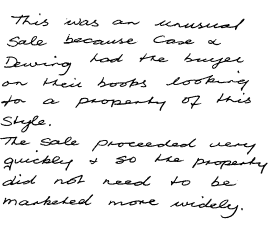 This was an unusual
Sale because Case &
Dewing had the buyer
on their books looking
for a property of this
Style.
The sale proceeded very
quickly & so the property
did not need to be
marketed more widely.